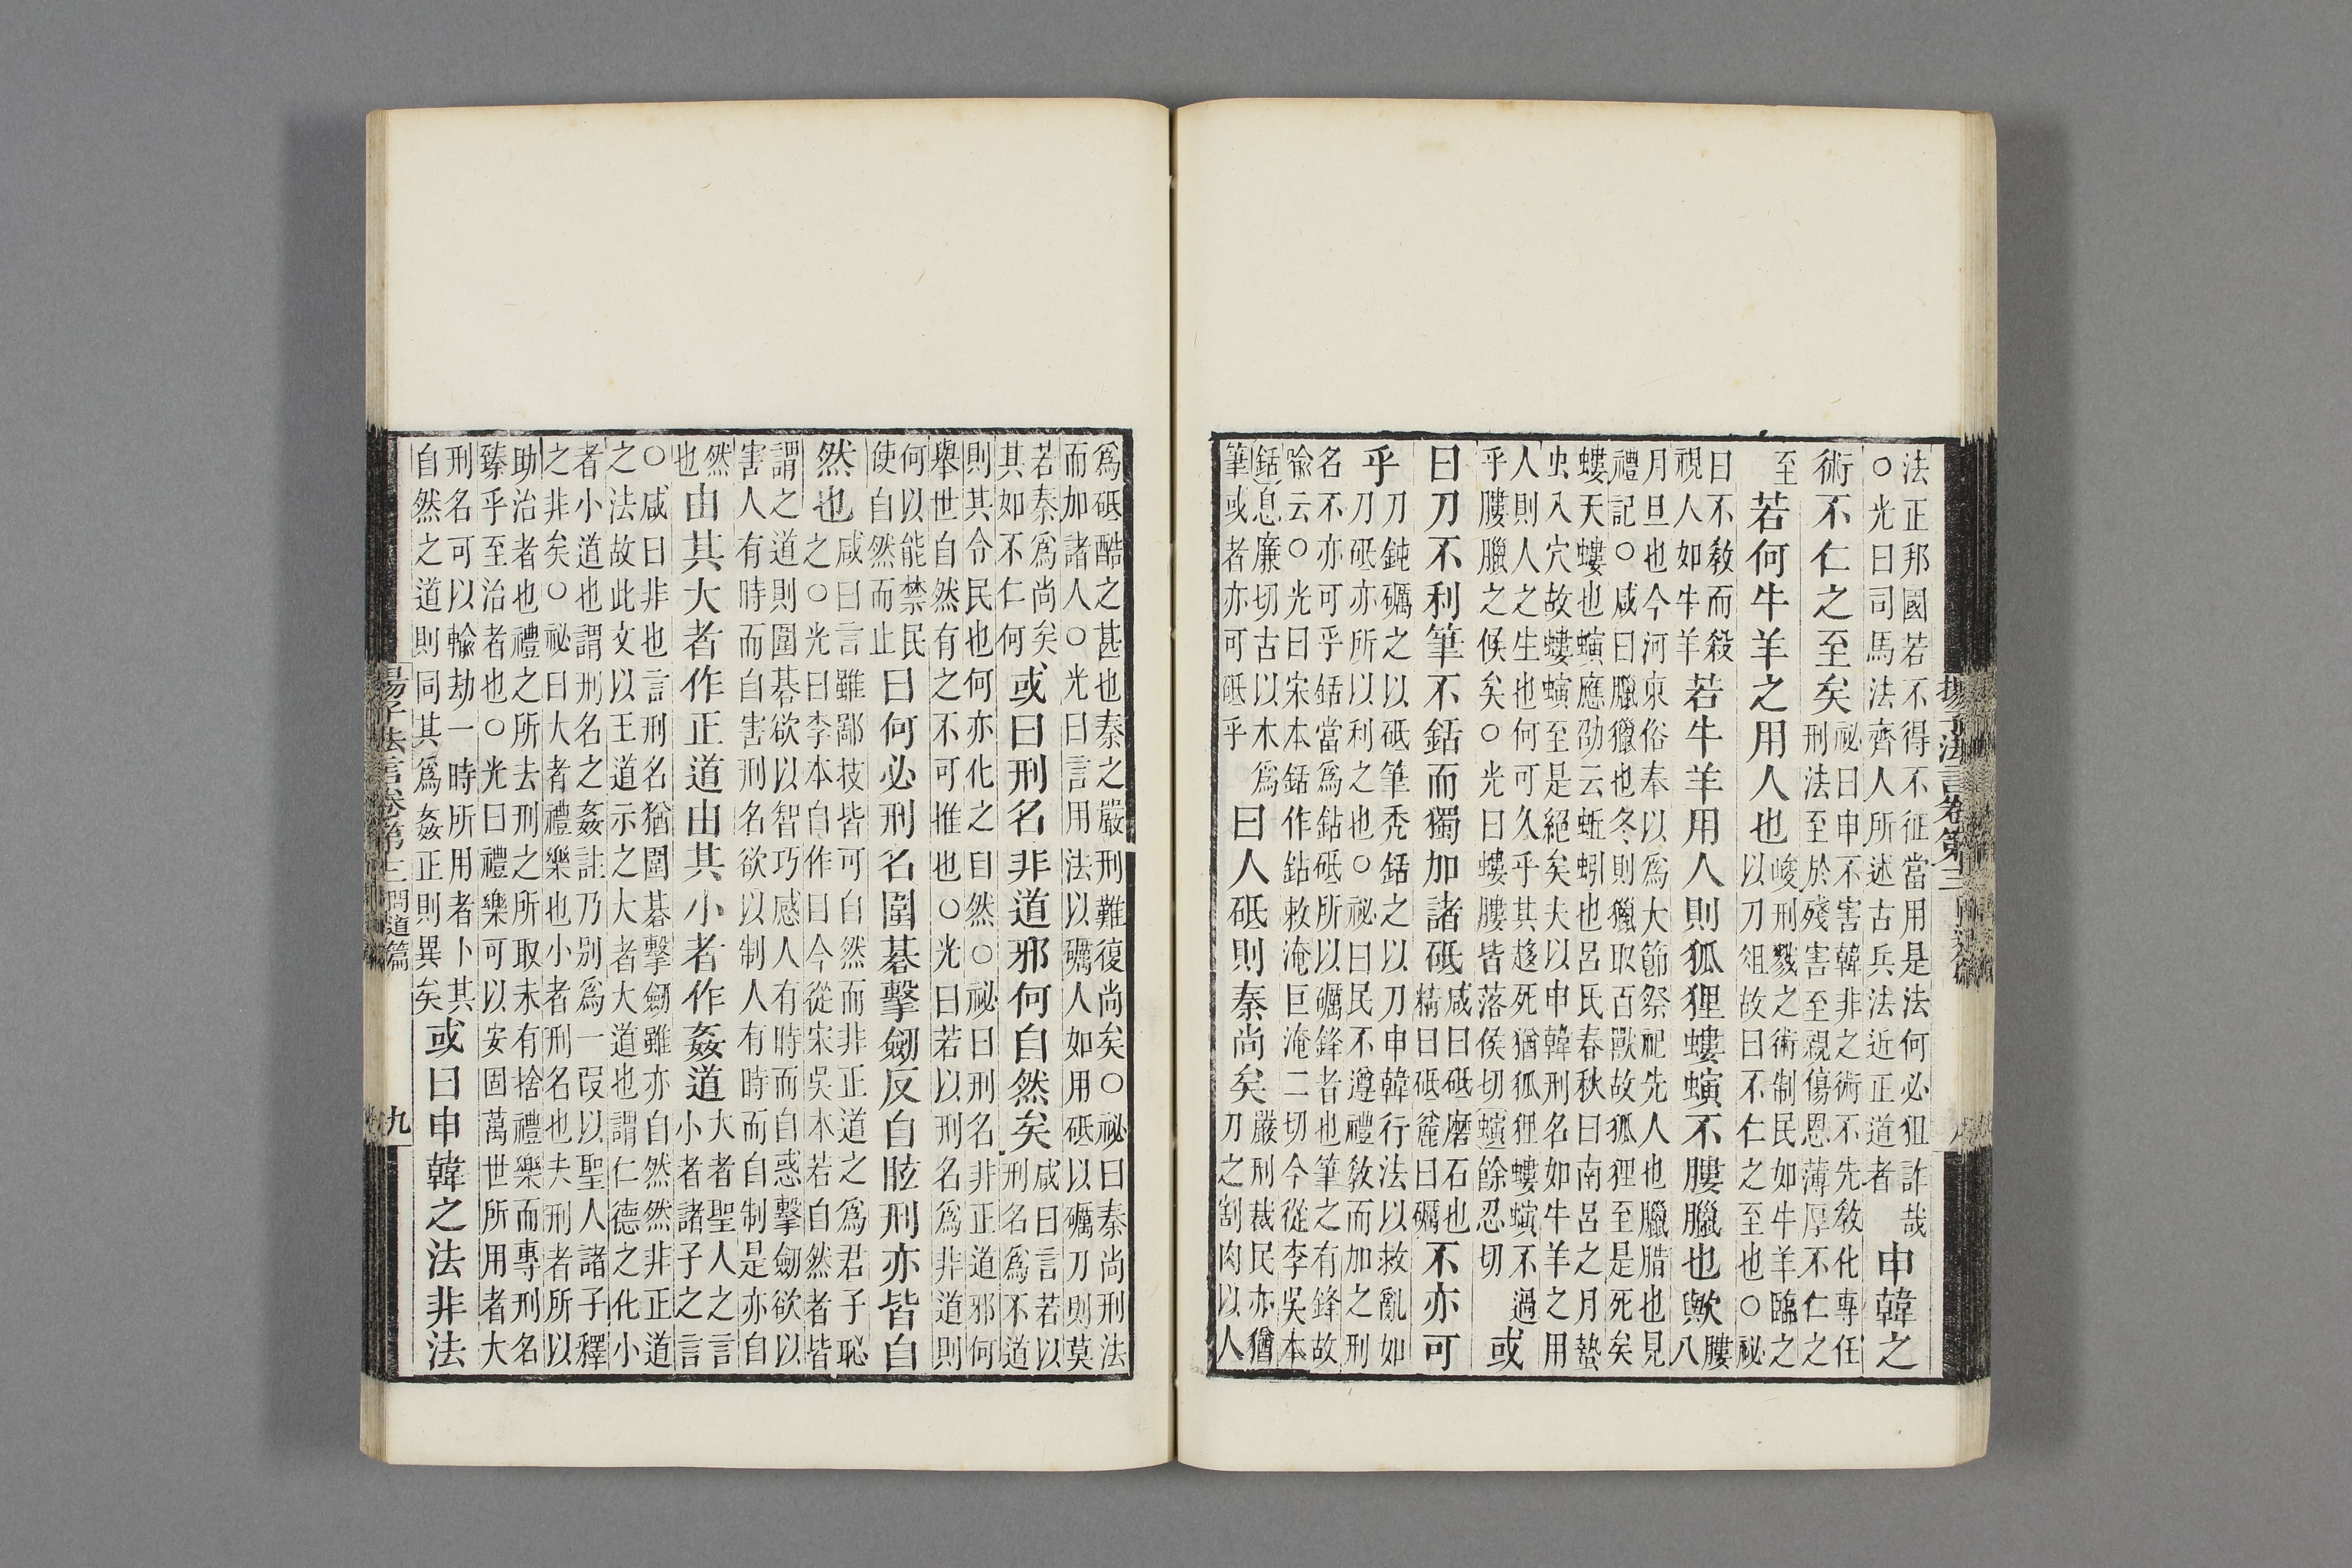 揚子法言卷第三
法正邦國若不得不征當用是法何必狙詐哉
○光曰司馬法齊人所述古兵法近正道者
申韓之
術不仁之至矣
祕曰申不害韓非之術不先敎化專任
刑法至於殘害至親傷恩薄厚不仁之
至
若何牛羊之用人也
峻刑戮之術制民如牛羊臨之
以刀俎故曰不仁之至也○祕
曰不敎而殺
視人如牛羊
若牛羊用人則狐狸螻螾不膢臘也歟
膢
八
月旦也今河東俗奉以爲大節祭祀先人也臘腊也見
禮記○咸曰臘獵也冬則獵取百獸故狐狸至是死矣
螻天螻也螾應劭云蚯蚓也呂氏春秋曰南呂之月蟄
虫入穴故螻螾至是絕矣夫以申韓刑名如牛羊之用
人則人之生也何可久乎其趍死猶狐狸螻螾不過
乎膢臘之候矣○光曰螻膢皆落侯切螾餘忍切
或
曰刀不利筆不銛而獨加諸砥
咸曰砥磨石也
精曰砥麄曰礪
不亦可
乎
刀鈍礪之以砥筆禿銛之以刀申韓行法以救亂如
刀砥亦所以利之也○祕曰民不遵禮敎而加之刑
名不亦可乎銛當爲鉆砥所以礪鋒者也筆之有鋒故
喩云○光曰宋本銛作鉆敕淹巨淹二切今從李吳本
銛息廉切古以木爲
筆或者亦可砥乎
曰人砥則秦尚矣
嚴刑裁民亦猶
刀之割肉以人
爲砥酷之甚也秦之嚴刑難復尚矣○祕曰秦尚刑法
而加諸人○光曰言用法以礪人如用砥以礪刀則莫
若秦爲尚矣
其如不仁何
或曰刑名非道邪何自然矣
咸曰言若以
刑名爲不道
則其令民也何亦化之自然○祕曰刑名非正道邪何
舉世自然有之不可推也○光曰若以刑名爲非道則
何以能禁民
使自然而止
曰何必刑名圍碁擊劒反自眩刑亦皆自
然也
咸曰言雖鄙技皆可自然而非正道之爲君子恥
之○光曰李本自作曰今從宋吳本若自然者皆
謂之道則圍碁欲以智巧惑人有時而自惑擊劒欲以
害人有時而自害刑名欲以制人有時而自制是亦自
然
也
由其大者作正道由其小者作姦道
大者聖人之言
小者諸子之言
○咸曰非也言刑名猶圍碁擊劒雖亦自然然非正道
之法故此文以王道示之大者大道也謂仁德之化小
者小道也謂刑名之姦註乃別爲一叚以聖人諸子釋
之非矣○祕曰大者禮樂也小者刑名也夫刑者所以
助治者也禮之所去刑之所取未有捨禮樂而專刑名
臻乎至治者也○光曰禮樂可以安固萬世所用者大
刑名可以輸劫一時所用者卜其
自然之道則同其爲姦正則異矣
或曰申韓之法非法
揚子法言卷第三 問道篇
九